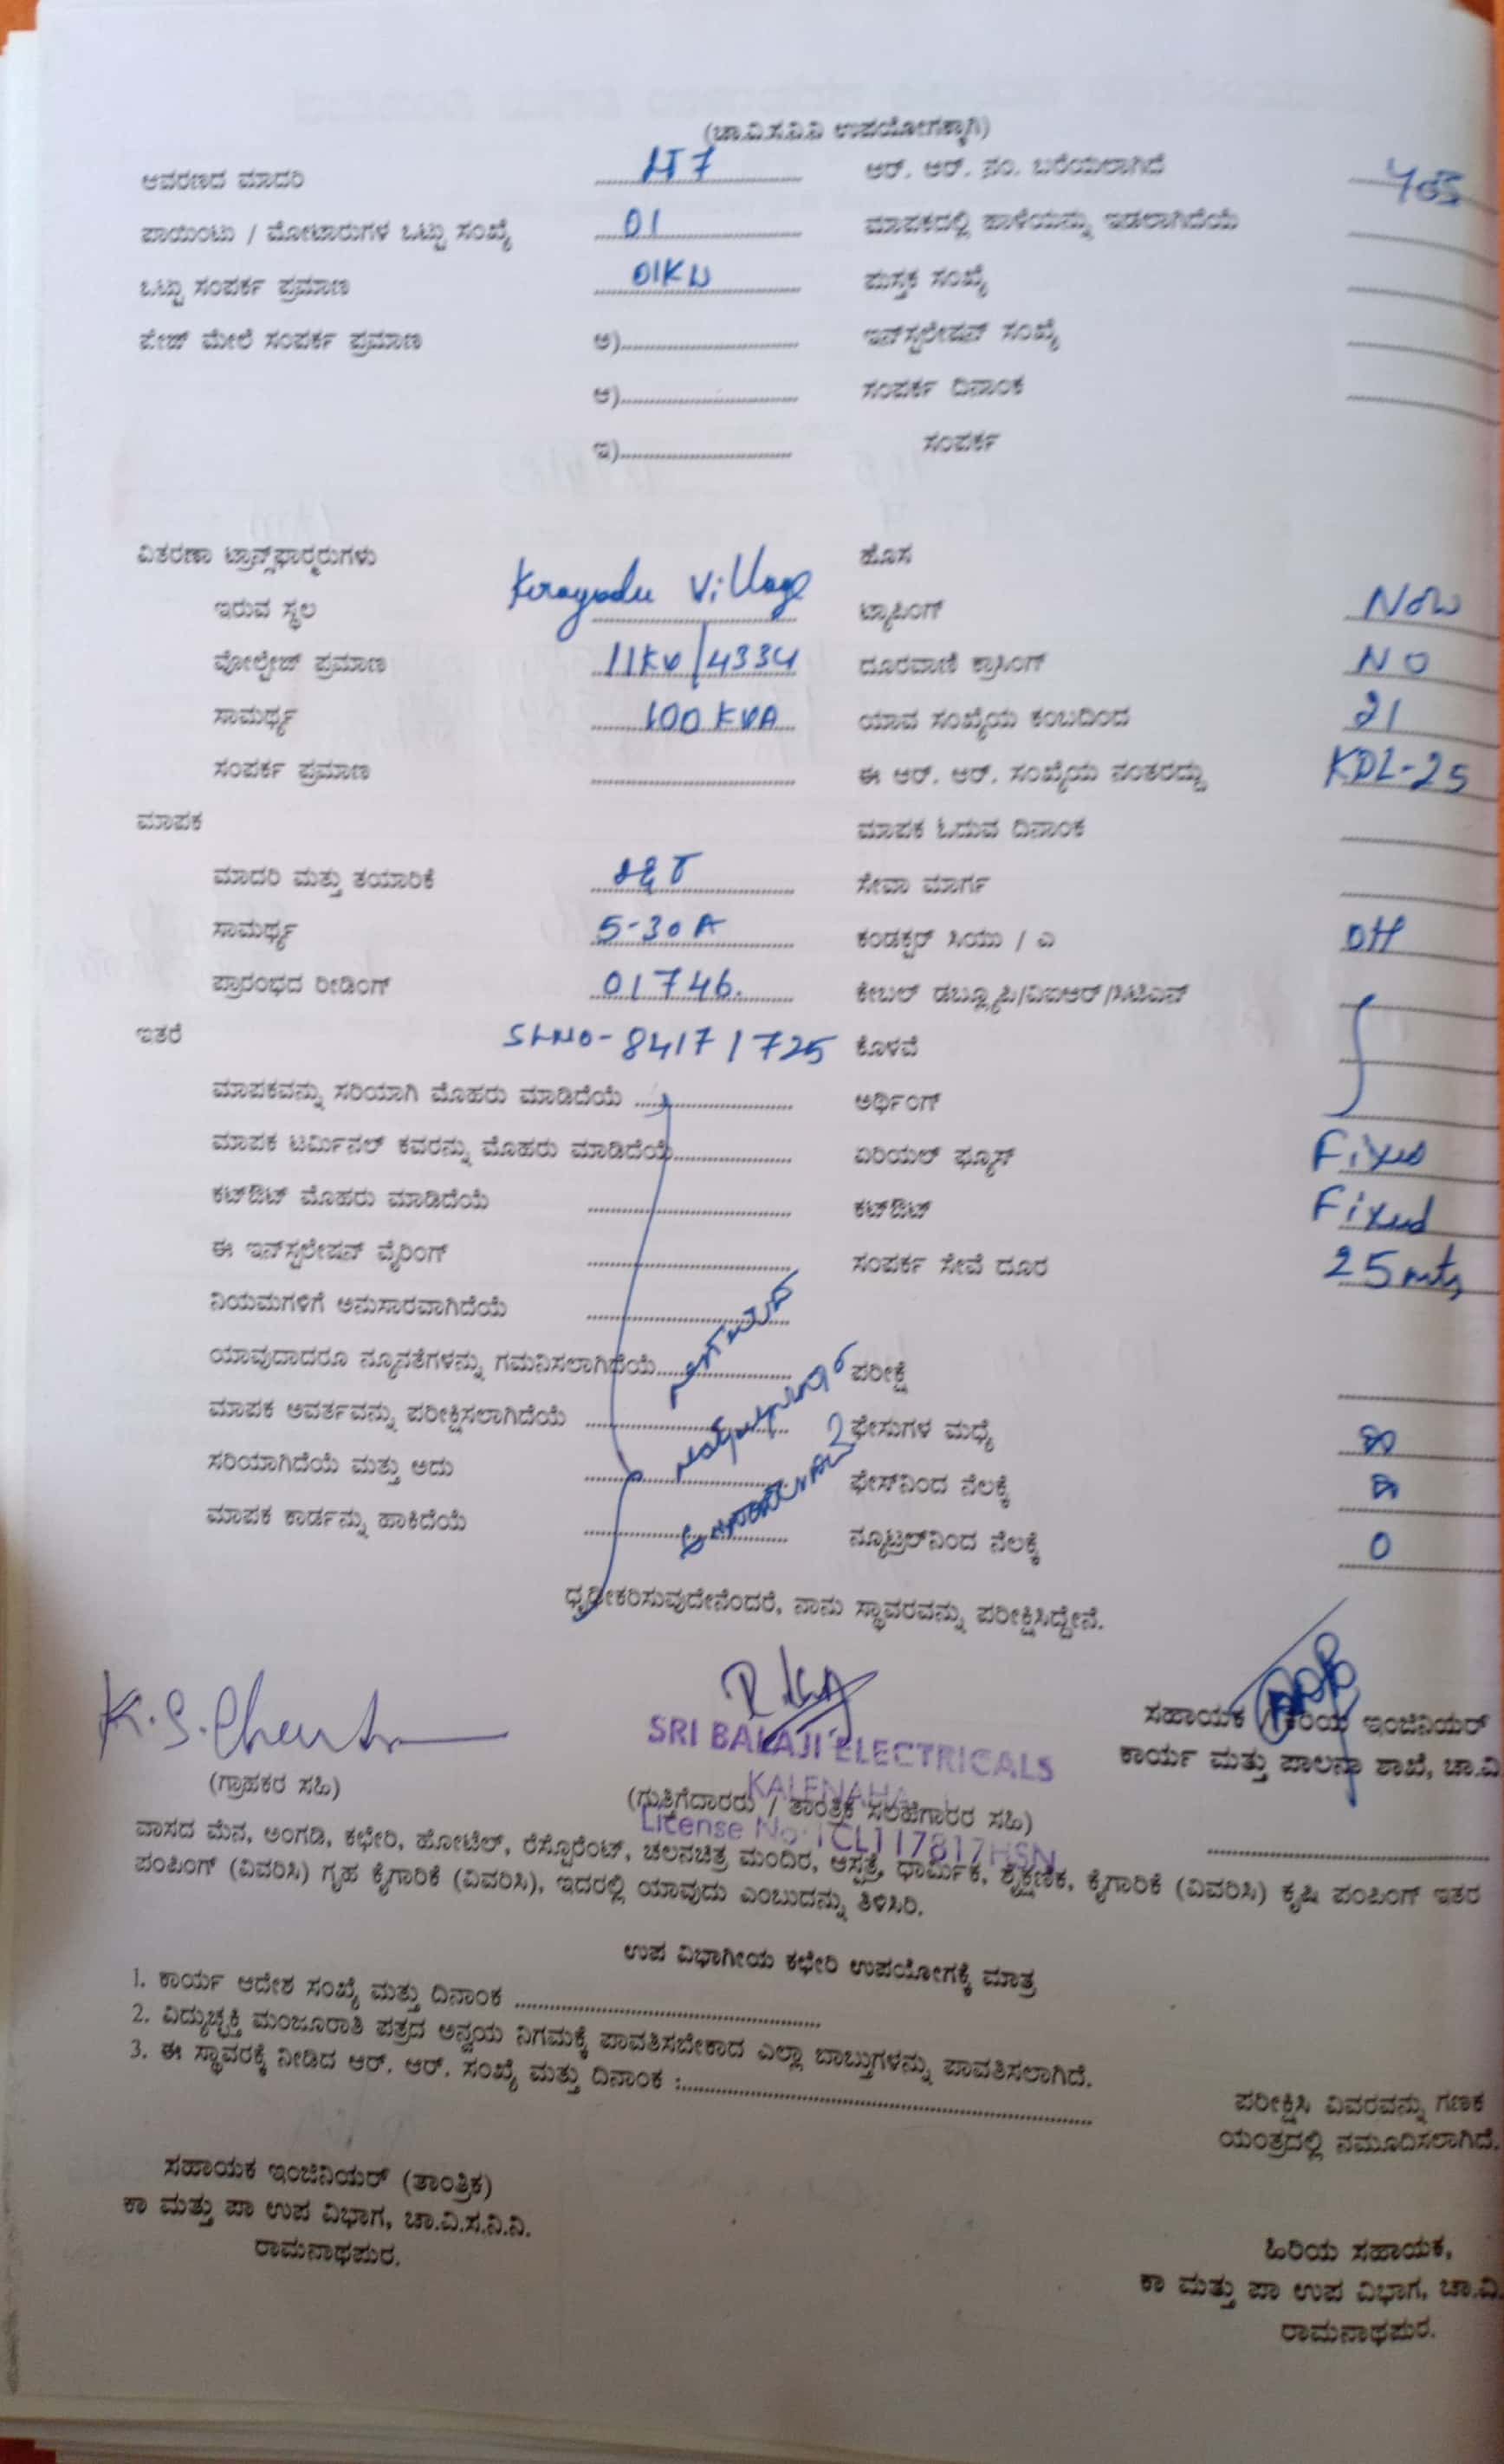 (ಚಾ.ವಿ.ಸ.ನಿ.ನಿ ಉಪಯೋಗಕ್ಕಾಗಿ)
ಆವರಣದ ಮಾದರಿ LT7 ಆರ್. ಆರ್. ನಂ. ಬರೆಯಲಾಗಿದೆ
ಪಾಯಿಂಟು / ಮೋಟಾರುಗಳ ಒಟ್ಟು ಸಂಖ್ಯೆ 01 ಮಾಪಕದಲ್ಲಿ ಹಾಳೆಯನ್ನು ಇಡಲಾಗಿದೆಯೆ
ಒಟ್ಟು ಸಂಪರ್ಕ ಪ್ರಮಾಣ 01KW ಪುಸ್ತಕ ಸಂಖ್ಯೆ
ಪೇಜ್ ಮೇಲೆ ಸಂಪರ್ಕ ಪ್ರಮಾಣ ಅ) ಇನ್‌ಸ್ಟಲೇಷನ್ ಸಂಖ್ಯೆ
ಆ) ಸಂಪರ್ಕ ದಿನಾಂಕ
ಇ) ಸಂಪರ್ಕ
ವಿತರಣಾ ಟ್ರಾನ್ಸ್‌ಫಾರ್ಮರುಗಳು ಹೊಸ
ಇರುವ ಸ್ಥಲ Village ಟ್ಯಾಪಿಂಗ್ New
ವೋಲ್ಟೇಜ್ ಪ್ರಮಾಣ 11KV/433V ದೂರವಾಣಿ ಕ್ರಾಸಿಂಗ್ NO
ಸಾಮರ್ಥ್ಯ 100 KVA ಯಾವ ಸಂಖ್ಯೆಯ ಕಂಬದಿಂದ 21
ಸಂಪರ್ಕ ಪ್ರಮಾಣ ಈ ಆರ್. ಆರ್. ಸಂಖ್ಯೆಯ ನಂತರದ್ದು KDL-25
ಮಾಪಕ ಮಾಪಕ ಓದುವ ದಿನಾಂಕ
ಮಾದರಿ ಮತ್ತು ತಯಾರಿಕೆ L&T ಸೇವಾ ಮಾರ್ಗ
ಸಾಮರ್ಥ್ಯ 5-30A ಕಂಡಕ್ಟರ್ ಸಿಯು / ಎ OH
ಪ್ರಾರಂಭದ ರೀಡಿಂಗ್ 01746. ಕೇಬಲ್ ಡಬ್ಲ್ಯೂಪಿ/ವಿಐಆರ್/ಸಿಟಿಎಸ್
ಇತರೆ SLNO-84171725 ಕೊಳವೆ
ಮಾಪಕವನ್ನು ಸರಿಯಾಗಿ ಮೊಹರು ಮಾಡಿದೆಯೆ ಅರ್ಥಿಂಗ್
ಮಾಪಕ ಟರ್ಮಿನಲ್ ಕವರನ್ನು ಮೊಹರು ಮಾಡಿದೆಯೆ ಏರಿಯಲ್ ಫ್ಯೂಸ್ Fixed
ಕಟ್‌ಔಟ್ ಮೊಹರು ಮಾಡಿದೆಯೆ ಕಟ್‌ಔಟ್ Fixed
ಈ ಇನ್‌ಸ್ಟಲೇಷನ್ ವೈರಿಂಗ್ ಸಂಪರ್ಕ ಸೇವೆ ದೂರ 25 mts
ನಿಯಮಗಳಿಗೆ ಅನುಸಾರವಾಗಿದೆಯೆ
ಯಾವುದಾದರೂ ನ್ಯೂನತೆಗಳನ್ನು ಗಮನಿಸಲಾಗಿದೆಯೆ ಪರೀಕ್ಷೆ
ಮಾಪಕ ಅವರ್ತವನ್ನು ಪರೀಕ್ಷಿಸಲಾಗಿದೆಯೆ ಫೇಸುಗಳ ಮಧ್ಯೆ
ಸರಿಯಾಗಿದೆಯೆ ಮತ್ತು ಅದು ಫೇಸ್‌ನಿಂದ ನೆಲಕ್ಕೆ
ಮಾಪಕ ಕಾರ್ಡನ್ನು ಹಾಕಿದೆಯೆ ನ್ಯೂಟ್ರಲ್‌ನಿಂದ ನೆಲಕ್ಕೆ 0
ಧೃಢೀಕರಿಸುವುದೇನೆಂದರೆ, ನಾನು ಸ್ಥಾವರವನ್ನು ಪರೀಕ್ಷಿಸಿದ್ದೇನೆ.
SRI BALAJI ELECTRICALS
ಸಹಾಯಕ / ಕಿರಿಯ ಇಂಜಿನಿಯರ್
ಕಾರ್ಯ ಮತ್ತು ಪಾಲನಾ ಶಾಖೆ, ಚಾ.ವಿ
(ಗ್ರಾಹಕರ ಸಹಿ)
(ಗುತ್ತಿಗೆದಾರರು / ತಾಂತ್ರಿಕ ಸಲಹೆಗಾರರ ಸಹಿ)
License No: 1CL117817HSN
ವಾಸದ ಮೆನ, ಅಂಗಡಿ, ಕಛೇರಿ, ಹೋಟೆಲ್, ರೆಸ್ಟೊರೆಂಟ್, ಚಲನಚಿತ್ರ ಮಂದಿರ, ಆಸ್ಪತ್ರೆ, ಧಾರ್ಮಿಕ, ಶೈಕ್ಷಣಿಕ, ಕೈಗಾರಿಕೆ (ವಿವರಿಸಿ) ಕೃಷಿ ಪಂಪಿಂಗ್ ಇತರ
ಪಂಪಿಂಗ್ (ವಿವರಿಸಿ) ಗೃಹ ಕೈಗಾರಿಕೆ (ವಿವರಿಸಿ), ಇದರಲ್ಲಿ ಯಾವುದು ಎಂಬುದನ್ನು ತಿಳಿಸಿರಿ.
ಉಪ ವಿಭಾಗೀಯ ಕಛೇರಿ ಉಪಯೋಗಕ್ಕೆ ಮಾತ್ರ
1. ಕಾರ್ಯ ಆದೇಶ ಸಂಖ್ಯೆ ಮತ್ತು ದಿನಾಂಕ
2. ವಿದ್ಯುಚ್ಛಕ್ತಿ ಮಂಜೂರಾತಿ ಪತ್ರದ ಅನ್ವಯ ನಿಗಮಕ್ಕೆ ಪಾವತಿಸಬೇಕಾದ ಎಲ್ಲಾ ಬಾಬ್ತುಗಳನ್ನು ಪಾವತಿಸಲಾಗಿದೆ.
3. ಈ ಸ್ಥಾವರಕ್ಕೆ ನೀಡಿದ ಆರ್. ಆರ್. ಸಂಖ್ಯೆ ಮತ್ತು ದಿನಾಂಕ :
ಪರೀಕ್ಷಿಸಿ ವಿವರವನ್ನು ಗಣಕ
ಯಂತ್ರದಲ್ಲಿ ನಮೂದಿಸಲಾಗಿದೆ.
ಸಹಾಯಕ ಇಂಜಿನಿಯರ್ (ತಾಂತ್ರಿಕ)
ಕಾ ಮತ್ತು ಪಾ ಉಪ ವಿಭಾಗ, ಚಾ.ವಿ.ಸ.ನಿ.ನಿ.
ರಾಮನಾಥಪುರ.
ಹಿರಿಯ ಸಹಾಯಕ,
ಕಾ ಮತ್ತು ಪಾ ಉಪ ವಿಭಾಗ, ಚಾ.ವಿ.
ರಾಮನಾಥಪುರ.